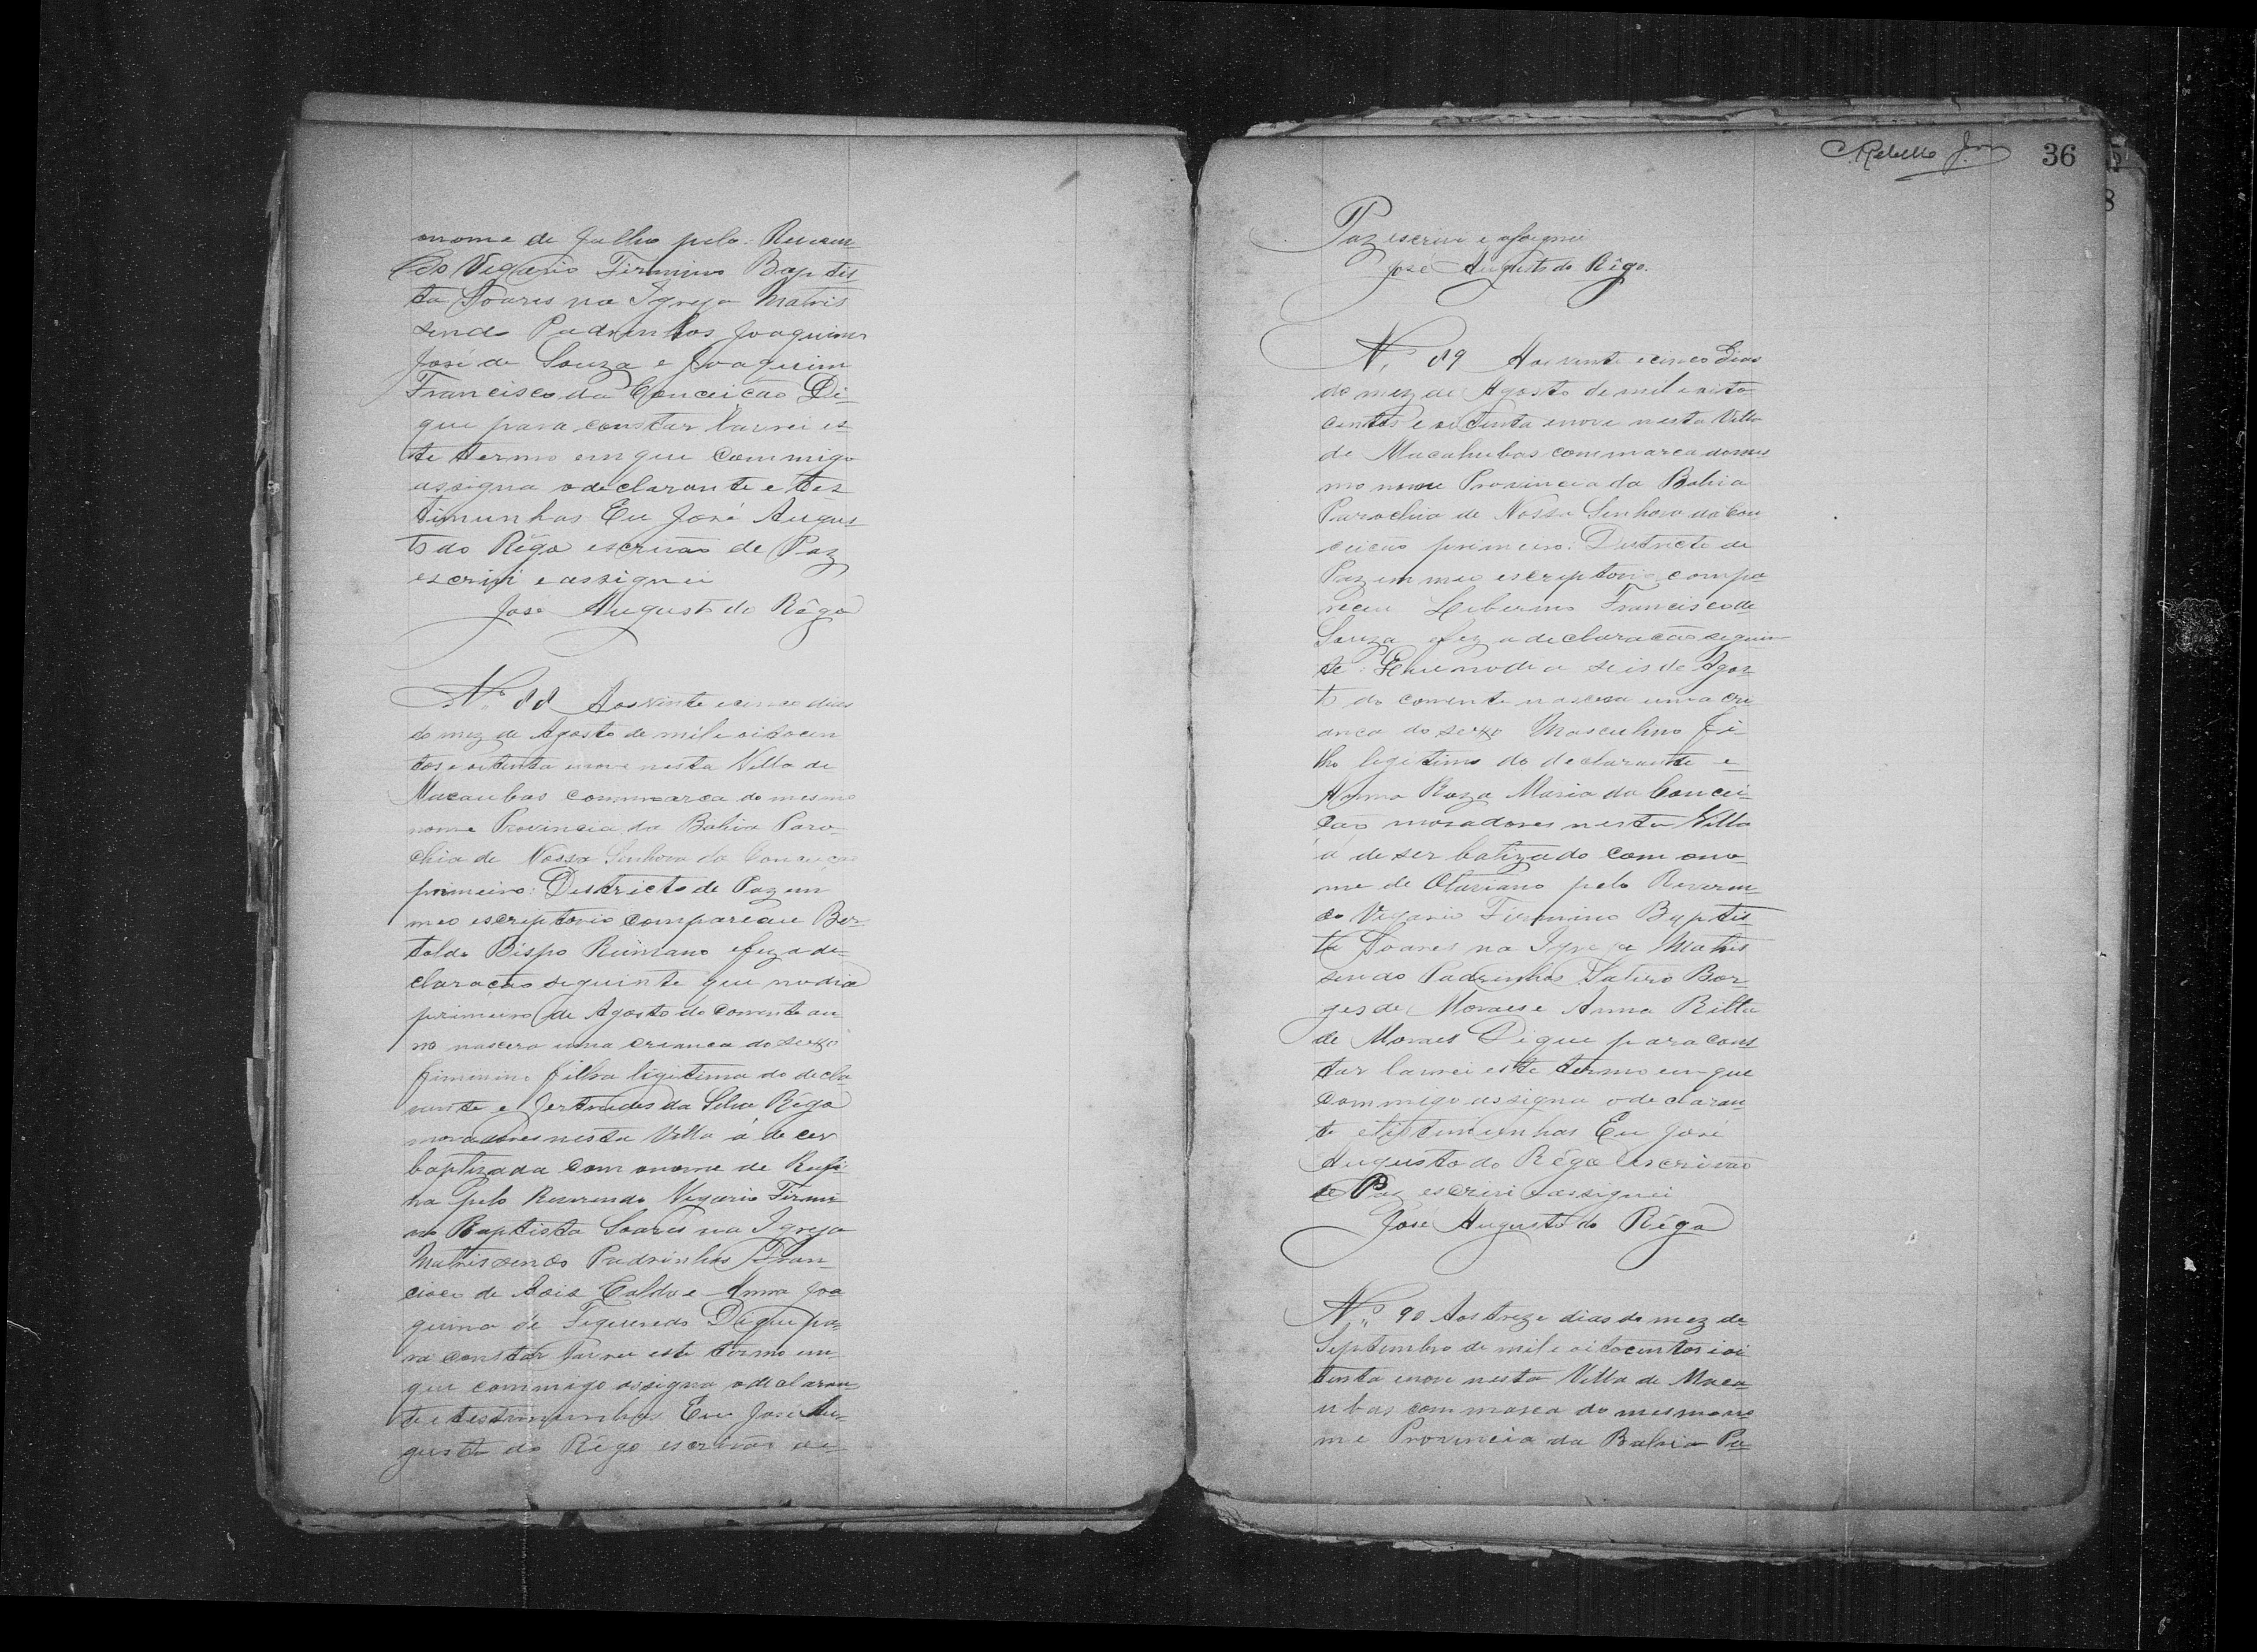 onome de Julho pelo Reveren
do Vigario Firmino Baptis
ta Soares na Igreja Matris
sendo Padrinhos Joaquim
José de Souza e Joaquim
Francisco da Conceicão Di
que para constar lavrei es
te termo em que commigo
assigna o declarante e tes
timunhas Eu José Augus
to do Rêgo escrivão de Paz
escrivi e assignei
José Augusto do Rêgo
Nº 88 Aos vinte e cinco dias
do mez de Agosto de mil e oitocen
tos e oitenta e nove nesta Villa de
Macaubas commarca do mesmo
nome Provincia da Bahia Paro
chia de Nossa Senhora da Conceição
primeiro: Districto de Paz em
meo escriptorio compareceu Ber
toldo Bispo e fez a de
claracão seguinte que no dia
primeiro de Agosto do corrente an
no nascera uma crianca do sexo
fiminino filha ligitima do decla
rante e Jertrudes da Silva Rêgo
moradores nesta Villa á de cer
baptizada com onome de Rufi
na pelo Reverendo Vigario Firmi
no Baptista Soares na Igreja
Matris sendo Padrinhos Fran
cisco de Asis Caldo e Anna Joa
quina de Figueredo Di que pa
ra constar lavrei este termo em
que commigo assigna o declaran
te e testimunhas Eu José Au
gusto do Rêgo escrivão de
Rebello Jor 36
Paz escrivi e assignei
José Augusto do Rêgo.
N. 89 Aos vinte e cinco Dias
do mez de Agosto de mil e oito
centos e oitenta e nove nesta Villa
de Macahubas commarca do mes
mo nome Provincia da Bahia
Parochia de Nossa Senhora da Con
ceicão primeiro: Districto de
Paz em meo escriptorio compa
receu Liberino Francisco de
Souza e fez a declaracão seguin
te: Que no dia seis de Agos
to do corrente nascera uma cri
anca do sexo Masculino fi
lho legitimo do declarante e
Anna Roza Maria da Concei
cão moradores nesta Villa
á de ser batizado com ono
me de Otaviano pelo Reveren
do Vigario Firmino Baptis
ta Soares na Igreja Matris
sendo Padrinhos Saturo Bor
ges de Moraes e Anna Ritta
de Moraes Di que para cons
tar lavrei este termo em que
commigo assigna o declaran
te e testimunhas Eu José
Augusto do Rêgo Escrivão
de Paz escrivi e assignei
José Augusto do Rêgo
Nº 90 Aos treze dias do mez de
Septembro de mil e oitocentos e oi
tenta e nove nesta Villa de Maca
ubas commarca do mesmo no
me Provincia da Bahia Pa